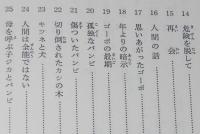 14 危険を脱して
15 再会
16 人間の話
17 思いあがったゴーボ
18 年よりの暗示
19 ゴーボの最期
20 孤独なバンビ
21 傷ついたバンビ
22 切り倒されたカシの木
23 キツネと犬
24 人間は全能ではない
25 母を呼ぶ子ジカとバンビ